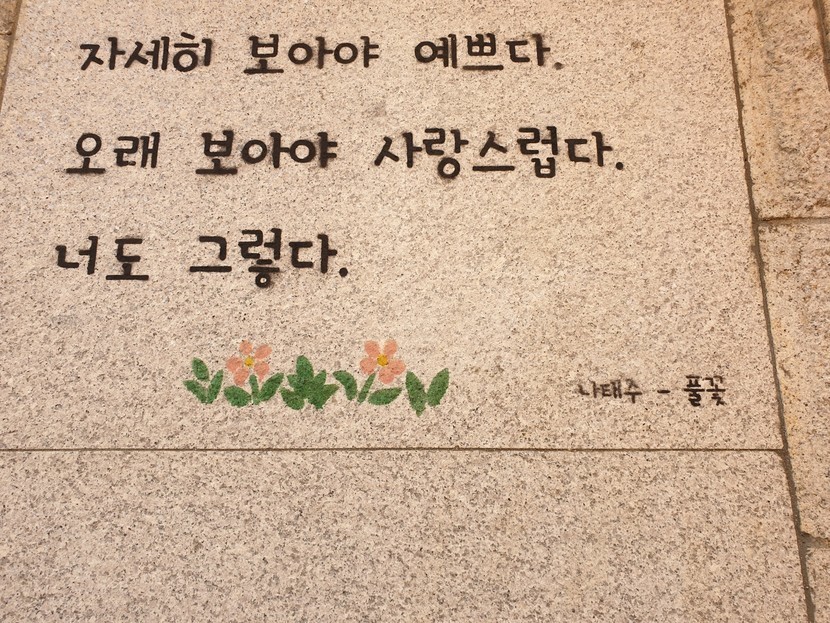 자세히 보아야 예쁘다.
오래 보아야 사랑스럽다.
너도 그렇다.
나태주 - 풀꽃